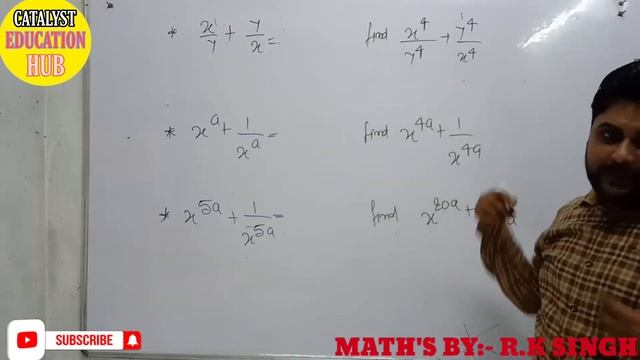 CATALYST
EDUCATION
HUB
* x/y + y/x = find x⁴/y⁴ + y⁴/x⁴
* xᵃ + 1/xᵃ = find x⁴ᵃ + 1/x⁴ᵃ
* x⁵ᵃ + 1/x⁵ᵃ = find x²⁰ᵃ +
SUBSCRIBE
MATH'S BY:- R.K SINGH